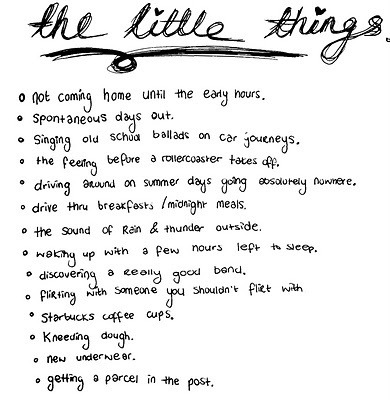 the little things.
not coming home until the early hours.
spontaneous days out.
Singing old school ballads on car journeys.
the feeling before a rollercoaster takes off.
driving around on summer days going absolutely nowhere.
drive thru breakfasts / midnight meals.
the sound of Rain & thunder outside.
waking up with a few hours left to sleep.
discovering a really good band.
flirting with someone you shouldn't flirt with
Starbucks coffee cups.
Kneeding dough.
new underwear.
getting a parcel in the post.